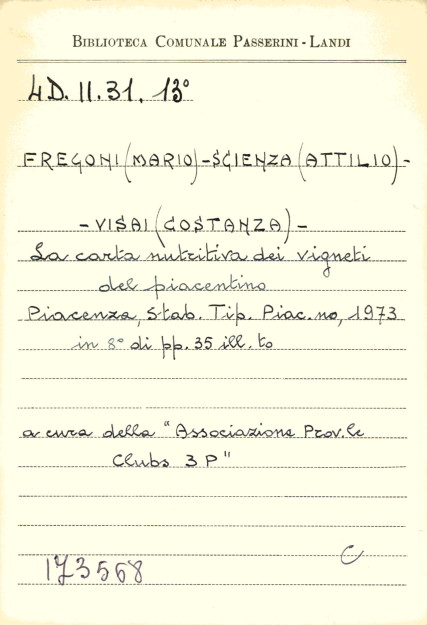 BIBLIOTECA COMUNALE PASSERINI - LANDI
4D. II. 31. 13°
FREGONI (MARIO) - SCIENZA (ATTILIO) -
- VISAI (COSTANZA) -
La carta nutritiva dei vigneti
del piacentino
Piacenza, Stab. Tip. Piac.no, 1973
in 8° di pp. 35 ill. to
a cura della "Associazione Prov.le
Clubs 3 P"
C
173568